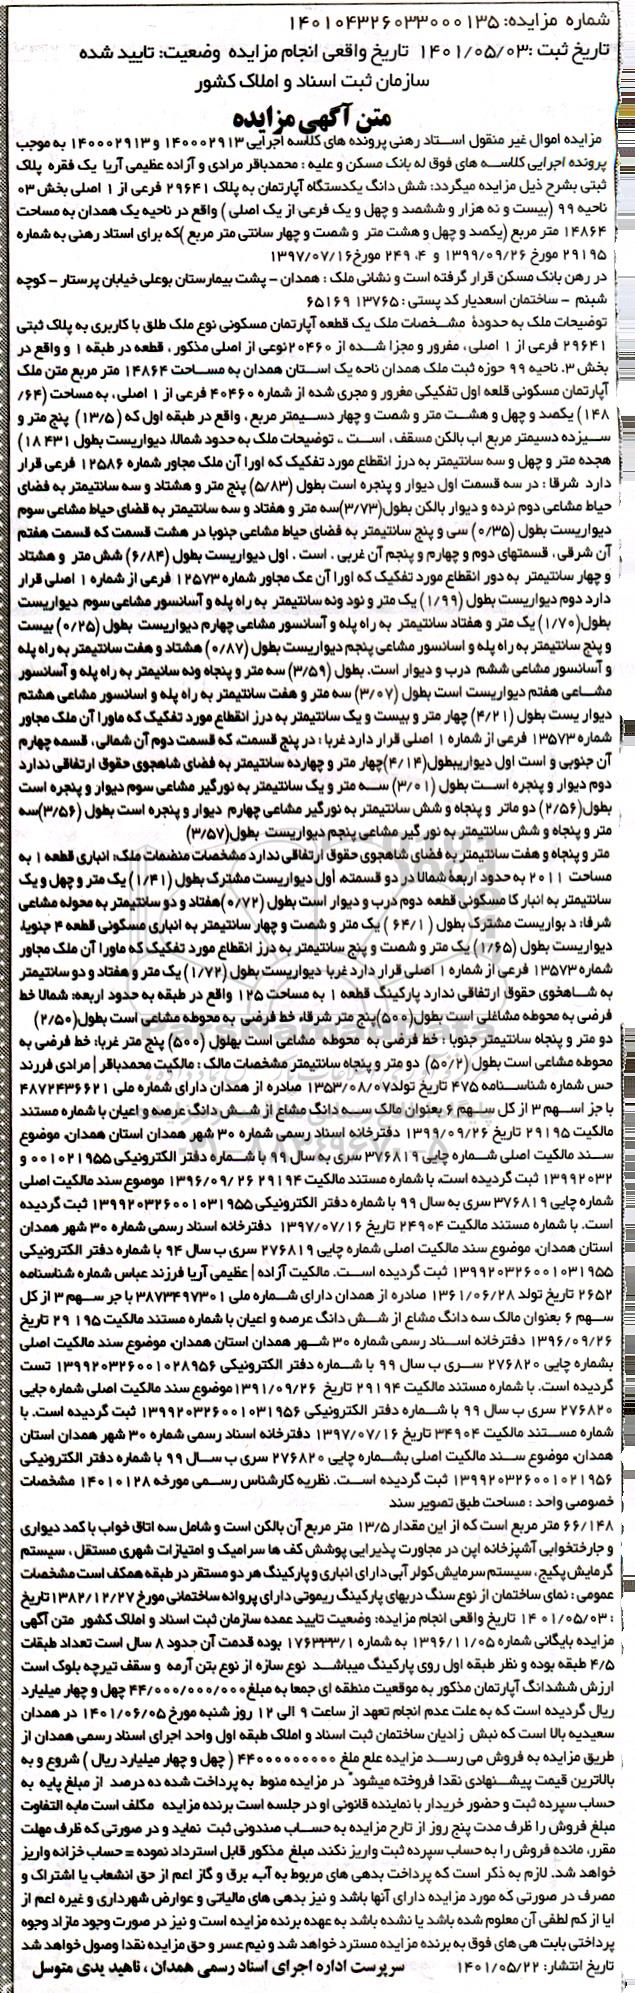 شماره مزایده: ۱۴۰۱۰۴۳۲۶۰۳۳۰۰۰۱۳۵
تاریخ ثبت :۱۴۰۱/۰۵/۰۳ تاریخ واقعی انجام مزایده وضعیت: تایید شده
سازمان ثبت اسناد و املاک کشور
متن آگهی مزایده
مزایده اموال غیر منقول اسناد رهنی پرونده های کلاسه اجرایی ۱۴۰۰۰۲۹۱۳ و ۱۴۰۰۰۲۹۱۳ به موجب
پرونده اجرایی کلاسه های فوق له بانک مسکن و علیه : محمدباقر مرادی و آزاده عظیمی آریا یک فقره پلاک
ثبتی بشرح ذیل مزایده میگردد: شش دانگ یکدستگاه آپارتمان به پلاک ۲۹۶۴۱ فرعی از ۱ اصلی بخش ۰۳
ناحیه ۹۹ (بیست و نه هزار و ششصد و چهل و یک فرعی از یک اصلی ) واقع در ناحیه یک همدان به مساحت
۱۴۸۶۴ متر مربع (یکصد و چهل و هشت متر و شصت و چهار سانتی متر مربع )که برای استاد رهنی به شماره
۲۹۱۹۵ مورخ ۱۳۹۹/۰۹/۲۶ و ۲۴۹،۴ مورخ۱۳۹۷/۰۷/۱۶
در رهن بانک مسکن قرار گرفته است و نشانی ملک : همدان - پشت بیمارستان بوعلی خیابان پرستار - کوچه
شبنم - ساختمان اسعدیار کد پستی : ۱۳۷۶۵ ۶۵۱۶۹
توضیحات ملک به حدودۀ مشخصات ملک یک قطعه آپارتمان مسکونی نوع ملک طلق با کاربری به پلاک ثبتی
۲۹۶۴۱ فرعی از ۱ اصلی ، مفروز و مجزا شده از ۲۰۴۶۰نوعی از اصلی مذکور ، قطعه در طبقه ۱ و واقع در
بخش ۳. ناحیه ۹۹ حوزه ثبت ملک همدان ناحه یک استان همدان به مساحت ۱۴۸۶۴ متر مربع متن ملک
آپارتمان مسکونی قلعه اول تفکیکی مغرور و مجری شده از شماره ۴۰۴۶۰ فرعی از ۱ اصلی ، به مساحت (۶۴/
۱۴۸) یکصد و چهل و هشت متر و شصت و چهار دسیمتر مربع ، واقع در طبقه اول که (۱۳/۵) پنج متر و
سیزده دسیمتر مربع اب بالکن مسقف، است ،. توضیحات ملک به حدود شمالا، دیواریست بطول (۴۳۱ ۱۸)
هجده متر و چهل و سه سانتیمتر به درز انقطاع مورد تفکیک که اورا آن ملک مجاور شماره ۱۲۵۸۶ فرعی قرار
دارد شرقا : در سه قسمت اول دیوار و پنجره است بطول (۵/۸۳) پنج متر و هشتاد و سه سانتیمتر به فضای
حیاط مشاعی دوم نرده و دیوار بالکن بطول(۳/۷۳)سه متر و هفتاد و سه سانتیمتر به فضای حیاط مشاعی سوم
دیواریست بطول (۰/۳۵) سی و پنج سانتیمتر به فضای حیاط مشاعی جنوبا در هشت قسمت که قسمت هفتم
آن شرقی ، قسمتهای دوم و چهارم و پنجم آن غربی ، است . اول دیواریست بطول (۶/۸۴) شش متر و هشتاد
و چهار سانتیمتر به دور انقطاع مورد تفکیک که اورا آن عک مجاور شماره ۱۲۵۷۳ فرعی از شماره ۱ اصلی قرار
دارد دوم دیواریست بطول (۱/۹۹) یک متر و نود ونه سانتیمتر به راه پله و آسانسور مشاعی سوم دیواریست
بطول(۱/۷۰) یک متر و هفتاد سانتیمتر به راه پله و آسانسور مشاعی چهارم دیواریست بطول (۰/۲۵) بیست
و پنج سانتیمتر به راه پله و اسانسور مشاعی پنجم دیواریست بطول (۰/۸۷) هشتاد و هفت سانتیمتر به راه پله
و آسانسور مشاعی ششم درب و دیوار است. بطول (۳/۵۹) سه متر و پنجاه ونه سانیمتر به راه پله و آسانسور
مشاعی هفتم دیواریست است بطول (۳/۰۷) سه متر و هفت سانتیمتر به راه پله و اسانسور مشاعی هشتم
دیوار یست بطول (۴/۲۱) چهار متر و بیست و یک سانتیمتر به درز انقطاع مورد تفکیک که ماورا آن ملک مجاور
شماره ۱۳۵۷۳ فرعی از شماره ۱ اصلی قرار دارد غربا : در پنج قسمت، که قسمت دوم آن شمالی ، قسمه چهارم
آن جنوبی و است اول دیواریبطول(۴/۱۴)چهار متر و چهارده سانتیمتر به فضای شاهجوی حقوق ارتفاقی ندارد
دوم دیوار و پنجره است بطول (۳/۰۱) سه متر و یک سانتیمتر به نورگیر مشاعی سوم دیوار و پنجره است
بطول(۲/۵۶) دو ماتر و پنجاه و شش سانتیمتر به نورگیر مشاعی چهارم دیوار و پنجره است بطول (۳/۵۶)سه
متر و پنجاه و شش سانتیمتر به نور گیر مشاعی پنجم دیواریست بطول(۳/۵۷)
متر و پنجاه و هفت سانتیمتر به فضای شاهجوی حقوق ارتفاقی ندارد مشخصات منضمات ملک: انباری قطعه ۱ به
مساحت ۲۰۱۱ به حدود اربعۀ شمالا در دو قسمته، اول دیواریست مشترک بطول (۱/۴۱) یک متر و چهل و یک
سانتیمتر به انبار کا مسکونی قطعه دوم درب و دیوار است بطول (۰/۷۲)هفتاد و دو سانتیمتر به محوله مشاعی
شرفا: د بواریست مشترک بطول (۶۴/۱ ) یک متر و شصت و چهار سانتیمتر به انباری مسکونی قطعه ۴ جنوبا،
دیواریست بطول (۱/۶۵) یک متر و شصت و پنج سانتیمتر به درز انقطاع مورد تفکیک که ماورا آن ملک مجاور
شماره ۱۳۵۷۳ فرعی از شماره ۱ اصلی قرار دارد غربا دیواریست بطول (۱/۷۲) یک متر و هفتاد و دو سانتیمتر
به شاهخوی حقوق ارتفاقی ندارد پارکینگ قطعه ۱ به مساحت ۱۲۵ واقع در طبقه به حدود اربعه: شمالا خط
فرضی به محوطه مشاغلی است بطول(۵۰۰)پنج متر شرقا، خط فرضی به محوطه مشاعی است بطول(۲/۵۰)
دو متر و پنجاه سانتیمتر جنوبا : خط فرضی به محوطه مشاعی است بهلول (۵۰۰) پنج متر غربا: خط فرضی به
محوطه مشاعی است بطول (۵۰/۲) دو متر و پنجاه سانتیمتر مشخصات مالک ، مالکیت محمدباقر | مرادی فرزند
حس شماره شناسنامه ۴۷۵ تاریخ تولد۱۳۵۳/۰۸/۰۷ صادره از همدان دارای شماره ملی ۴۸۷۲۴۳۶۶۲۱
با جز اسهم ۳ از کل سهم ۶ بعنوان مالک سه دانگ مشاع از شش دانگ عرصه و اعیان با شماره مستند
مالکیت ۲۹۱۹۵ تاریخ ۱۳۹۹/۰۹/۲۶ دفترخانه اسناد رسمی شماره ۳۰ شهر همدان استان همدان، موضوع
سند مالکیت اصلی شماره چاپی ۳۷۶۸۱۹ سری به سال ۹۹ با شماره دفتر الکترونیکی ۰۰۱۰۲۱۹۵۵ و
۱۳۹۹۲۰۳۲ ثبت گردیده است، با شماره مستند مالکیت ۲۹۱۹۴ ۱۳۹۶/۰۹/۲۶ موضوع سند مالکیت اصلی
شماره چاپی ۳۷۶۸۱۹ سری به سال ۹۹ با شماره دفتر الکترونیکی ۱۳۹۹۲۰۳۲۶۰۰۱۰۳۱۹۵۵ ثبت گردیده
است. با شماره مستند مالکیت ۲۴۹۰۴ تاریخ ۱۳۹۷/۰۷/۱۶ دفترخانه اسناد رسمی شماره ۳۰ شهر همدان
استان همدان، موضوع سند مالکیت اصلی شماره چاپی ۲۷۶۸۱۹ سری ب سال ۹۴ با شماره دفتر الکترونیکی
۱۳۹۹۲۰۳۲۶۰۰۱۰۳۱۹۵۵ ثبت گردیده است. مالکیت آزاده | عظیمی آریا فرزند عباس شماره شناسنامه
۲۶۵۲ تاریخ تولد ۱۳۶۱/۰۶/۲۸ صادره از همدان دارای شماره ملی ۳۸۷۳۴۹۷۳۰۱ با جر سهم ۳ از کل
سهم ۶ بعنوان مالک سه دانگ مشاع از شش دانگ عرصه و اعیان با شماره مستند مالکیت ۱۹۵ ۲۹ تاریخ
۱۳۹۶/۰۹/۲۶ دفترخانه اسناد رسمی شماره ۳۰ شهر همدان استان همدان، موضوع سند مالکیت اصلی
بشماره چاپی ۲۷۶۸۲۰ سری ب سال ۹۹ با شماره دفتر الکترونیکی ۱۳۹۹۲۰۳۲۶۰۰۱۰۲۸۹۵۶ تست
گردیده است. با شماره مستند مالکیت ۲۹۱۹۴ تاریخ ۱۳۹۱/۰۹/۲۶موضوع سند مالکیت اصلی شماره جایی
۲۷۶۸۲۰ سری ب سال ۹۹ با شماره دفتر الکترونیکی ۱۳۹۹۲۰۳۲۶۰۰۱۰۳۱۹۵۶ ثبت گردیده است. با
شماره مستند مالکیت ۳۴۹۰۴ تاریخ ۱۳۹۷/۰۷/۱۶ دفترخانه اسناد رسمی شماره ۳۰ شهر همدان استان
همدان، موضوع سند مالکیت اصلی بشماره چاپی ۲۷۶۸۲۰ سری ب سال ۹۹ با شماره دفتر الکترونیکی
۱۳۹۹۲۰۳۲۶۰۰۱۰۲۱۹۵۶ ثبت گردیده است. نظریه کارشناس رسمی مورخه ۱۴۰۱۰۱۲۸ مشخصات
خصوصی واحد : مساحت طبق تصویر سند
۶۶/۱۴۸ متر مربع است که از این مقدار ۱۳/۵ متر مربع آن بالکن است و شامل سه اتاق خواب با کمد دیواری
و جارختخوابی آشپزخانه اپن در مجاورت پذیرایی پوشش کف ها سرامیک و امتیازات شهری مستقل ، سیستم
گرمایش پکیج ، سیستم سرمایش کولر آبی دارای انباری و پارکینگ هر دو مستقر در طبقه همکف است مشخصات
عمومی : نمای ساختمان از نوع سنگ دربهای پارکینگ ریموتی دارای پروانه ساختمانی مورخ ۱۳۸۲/۱۲/۲۷تاریخ
:۱۴۰۱/۰۵/۰۳ تاریخ واقعی انجام مزایده: وضعیت تایید عمده سازمان ثبت اسناد و املاک کشور متن آگهی
مزایده بایگانی شماره ۱۳۹۶/۱۱/۰۵ به شماره ۱۷۶۳۳۳/۱ بوده قدمت آن حدود ۸ سال است تعداد طبقات
۴/۵ طبقه بوده و نظر طبقه اول روی پارکینگ میباشد نوع سازه از نوع بتن آرمه و سقف تیرچه بلوک است
ارزش ششدانگ آپارتمان مذکور به موقعیت منطقه ای جمعا به مبلغ۴۴/۰۰۰/۰۰۰/۰۰۰ چهل و چهار میلیارد
ریال گردیده است که به علت عدم انجام تعهد از ساعت ۹ الی ۱۲ روز شنبه مورخ ۱۴۰۱/۰۶/۰۵ در همدان
سعدیه بالا است که نبش زادیان ساختمان ثبت اسناد و املاک طبقه اول واحد اجرای اسناد رسمی همدان از
طریق مزایده به فروش می رسد مزایده علع ملغ ۴۴۰۰۰۰۰۰۰۰۰ ( چهل و چهار میلیارد ریال ) شروع و به
بالاترین قیمت پیشنهادی نقدا فروخته میشود در مزایده منوط به پرداخت شده ده درصد از مبلغ پایه به
حساب سپرده ثبت و حضور خریدار با نماینده قانونی او در جلسه است برنده مزایده مکلف است مابه التفاوت
مبلغ فروش را ظرف مدت پنج روز از تارح مزایده به حساب صندونی ثبت نماید و در صورتی که ظرف مهلت
مقرر، مانده فروش را به حساب سپرده ثبت واریز نکند، مبلغ مذکور قابل استرداد نموده = حساب خزانه واریز
خواهد شد. لازم به ذکر است که پرداخت بدهی های مربوط به آب، برق و گاز اعم از حق انشعاب یا اشتراک و
مصرف در صورتی که مورد مزایده دارای آنها باشد و نیز بدهی های مالیاتی و عوارض شهرداری و غیره اعم از
ایا از کم لطفی آن معلوم شده باشد یا نشده باشد به عهده برنده مزایده است و نیز در صورت وجود مازاد وجوه
پرداختی بابت هی های فوق به برنده مزایده مسترد خواهد شد و نیم عسر و حق مزایده نقدا وصول خواهد شد
تاریخ انتشار: ۱۴۰۱/۰۵/۲۲ سرپرست اداره اجرای اسناد رسمی همدان ، ناهید یدی متوسل